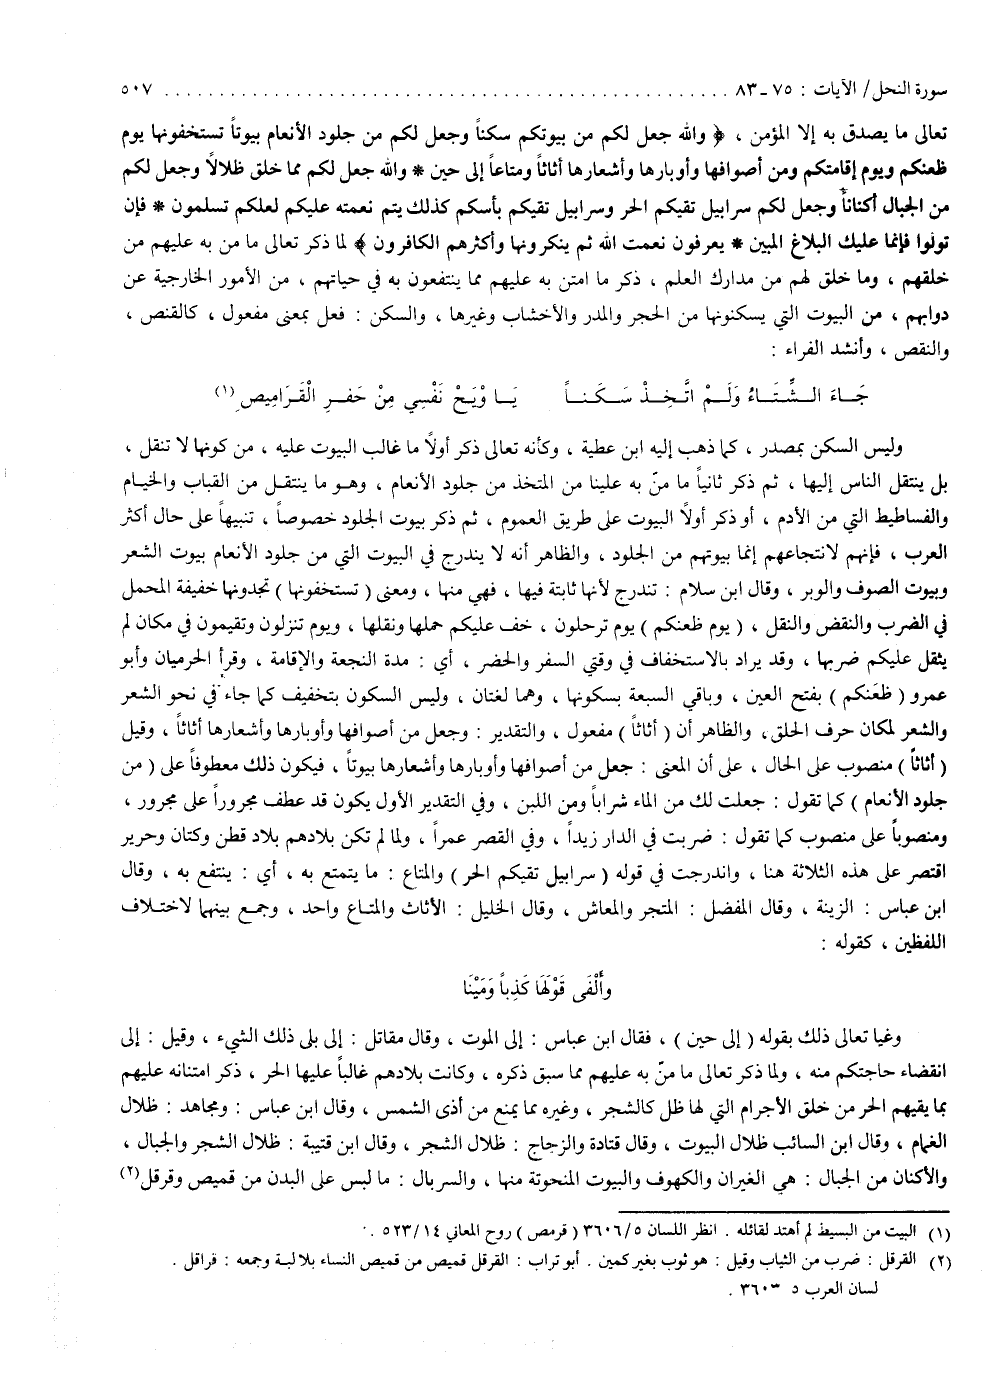 سورة النحل / الآيات : ٧٥ ـ ٨٣ . . . . . . . . . . . . . . . . . . . . . . . . . . . . . . . . . . . . . . . . . . . . . . . . . . ٥٠٧
تعالى ما يصدق به إلا المؤمن ، ﴿ والله جعل لكم من بيوتكم سكناً وجعل لكم من جلود الأنعام بيوتاً تستخفونها يوم
ظعنكم ويوم إقامتكم ومن أصوافها وأوبارها وأشعارها أثاثاً ومتاعاً إلى حين * والله جعل لكم مما خلق ظلالاً وجعل لكم
من الجبال أكناناً وجعل لكم سرابيل تقيكم الحر وسرابيل تقيكم بأسكم كذلك يتم نعمته عليكم لعلكم تسلمون * فإن
تولوا فإنما عليك البلاغ المبين * يعرفون نعمت الله ثم ينكرونها وأكثرهم الكافرون ﴾ لما ذكر تعالى ما من به عليهم من
خلقهم ، وما خلق لهم من مدارك العلم ، ذكر ما امتن به عليهم مما ينتفعون به في حياتهم ، من الأمور الخارجية عن
دوابهم ، من البيوت التي يسكنونها من الحجر والمدر والأخشاب وغيرها ، والسكن : فعل بمعنى مفعول ، كالقنص ،
والنقص ، وأنشد الفراء :
جَـاءَ الـشِّـتَـاءُ وَلَـمْ اتَّـخِـذْ سَـكَـنـاً يَـا وَيْـحَ نَفْسِي مِنْ حَفـرِ الْقَـرَامِيصِ(١)
وليس السكن بمصدر ، كما ذهب إليه ابن عطية ، وكأنه تعالى ذكر أولاً ما غالب البيوت عليه ، من كونها لا تنقل ،
بل ينتقل الناس إليها ، ثم ذكر ثانياً ما منّ به علينا من المتخذ من جلود الأنعام ، وهـو ما ينتقـل من القباب والخيـام
والفساطيط التي من الأدم ، أو ذكر أولاً البيوت على طريق العموم ، ثم ذكر بيوت الجلود خصوصاً ، تنبيهاً على حال أكثر
العرب ، فإنهم لانتجاعهم إنما بيوتهم من الجلود ، والظاهر أنه لا يندرج في البيوت التي من جلود الأنعام بيوت الشعر
وبيوت الصوف والوبر ، وقال ابن سلام : تندرج لأنها ثابتة فيها ، فهي منها ، ومعنى ( تستخفونها ) تجدونها خفيفة المحمل
في الضرب والنقض والنقل ، ( يوم ظعنكم ) يوم ترحلون ، خف عليكم حملها ونقلها ، ويوم تنزلون وتقيمون في مكان لم
يثقل عليكم ضربها ، وقد يراد بالاستخفاف في وقتي السفر والحضر ، أي : مدة النجعة والإقامة ، وقرأ الحرميان وأبو
عمرو ( ظَعَنكم ) بفتح العين ، وباقي السبعة بسكونها ، وهما لغتان ، وليس السكون بتخفيف كما جاء في نحو الشعر
والشعر لمكان حرف الحلق، والظاهر أن ( أثاثاً ) مفعول ، والتقدير : وجعل من أصوافها وأوبارها وأشعارها أثاثاً ، وقيل
( أثاثاً ) منصوب على الحال ، على أن المعنى : جعل من أصوافها وأوبارها وأشعارها بيوتاً ، فيكون ذلك معطوفاً على ( من
جلود الأنعام ) كما تقول : جعلت لك من الماء شراباً ومن اللبن ، وفي التقدير الأول يكون قد عطف مجروراً على مجرور ،
ومنصوباً على منصوب كما تقول : ضربت في الدار زيداً ، وفي القصر عمراً ، ولما لم تكن بلادهم بلاد قطن وكتان وحرير
اقتصر على هذه الثلاثة هنا ، واندرجت في قوله ( سرابيل تقيكم الحر ) والمتاع : ما يتمتع به ، أي : ينتفع به ، وقال
ابن عباس : الزينة ، وقال المفضل : المتجر والمعاش ، وقال الخليل : الأثاث والمتـاع واحد ، وجمـع بينهما لاختـلاف
اللفظين ، كقوله :
وأَلْفَى قَوْلَهَا كَذِباً وَمَيْنَا
وغيا تعالى ذلك بقوله ( إلى حين ) ، فقال ابن عباس : إلى الموت ، وقال مقاتل : إلى بلى ذلك الشيء ، وقيل : إلى
انقضاء حاجتكم منه ، ولما ذكر تعالى ما منّ به عليهم مما سبق ذكره ، وكانت بلادهم غالباً عليها الحر ، ذكر امتنانه عليهم
بما يقيهم الحر من خلق الأجرام التي لها ظل كالشجر ، وغيره مما يمنع من أذى الشمس ، وقال ابن عباس : ومجاهد : ظلال
الغمام ، وقال ابن السائب ظلال البيوت ، وقال قتادة والزجاج : ظلال الشجر ، وقال ابن قتيبة : ظلال الشجر والجبال ،
والأكنان من الجبال : هي الغيران والكهوف والبيوت المنحوتة منها ، والسربال : ما لبس على البدن من قميص وقرقل(٢)
(١) البيت من البسيط لم أهتد لقائله . انظر اللسان ٣٦٠٦/٥ ( قرمص ) روح المعاني ٥٢٣/١٤ .
(٢) القرقل : ضرب من الثياب وقيل : هو ثوب بغير كمين . أبو تراب : القرقل قميص من قميص النساء بلا لبة وجمعه : قراقل .
لسان العرب ٥ ٣٦٠٣ .